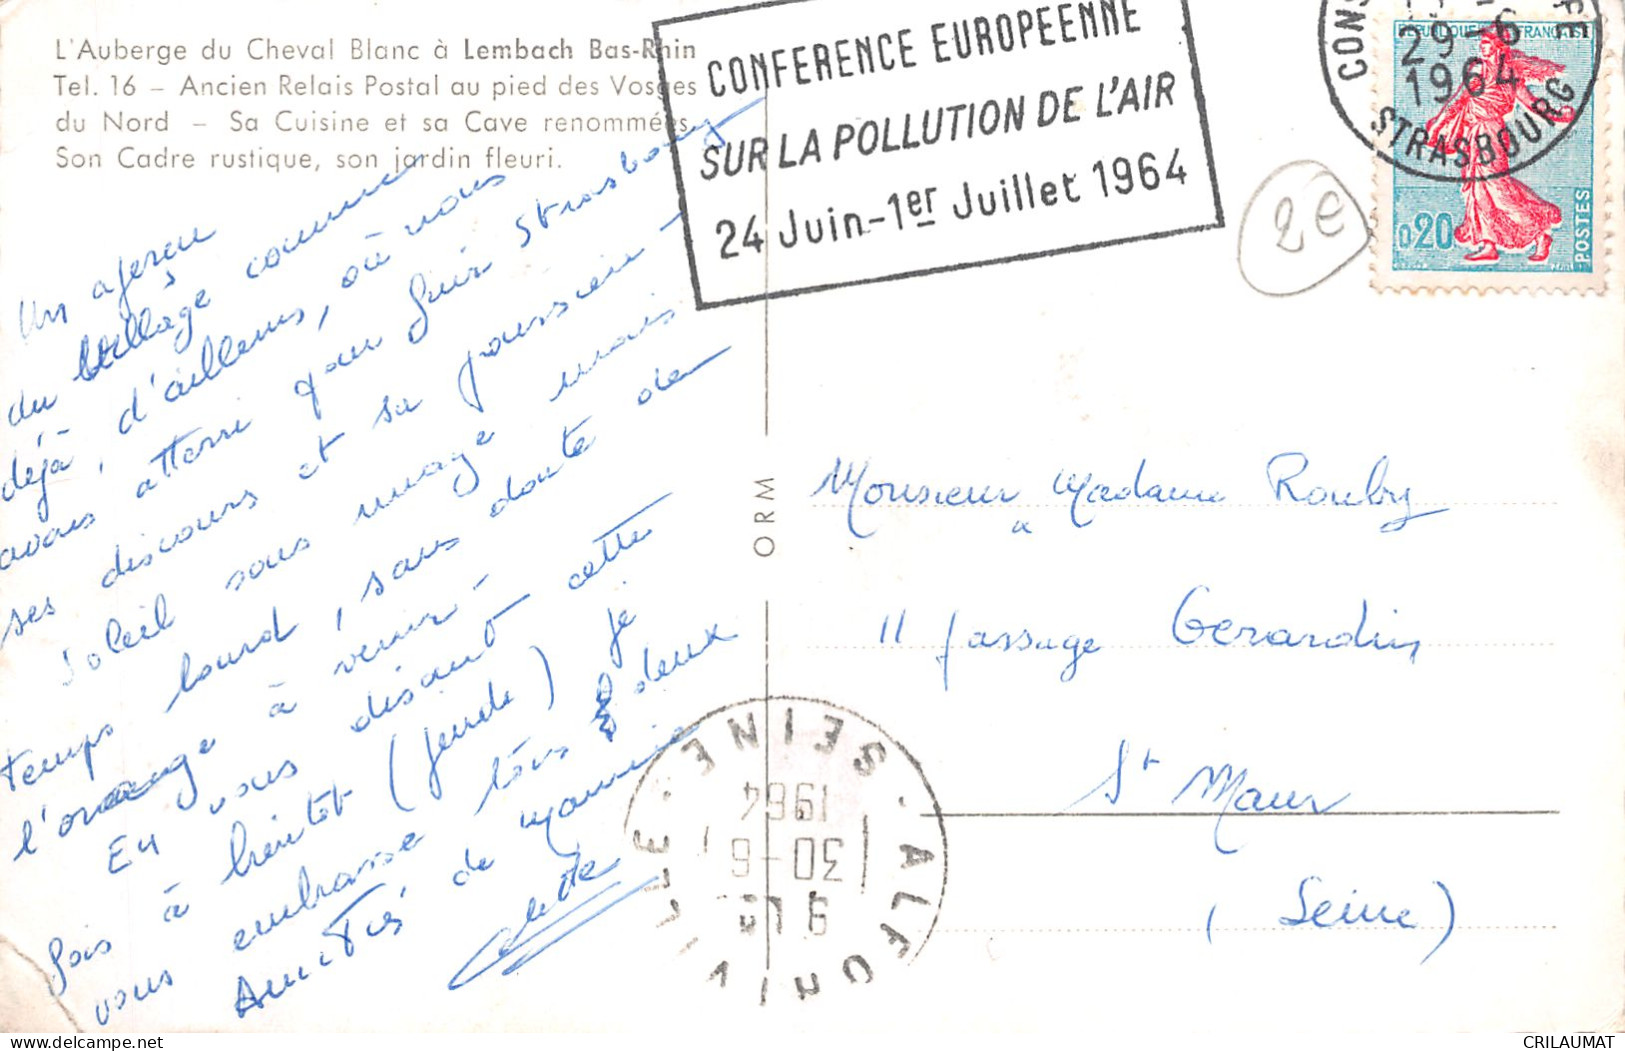 L'Auberge du Cheval Blanc à Lembach Bas-Rhin
Tel. 16 – Ancien Relais Postal au pied des Vosges
du Nord – Sa Cuisine et sa Cave renommées,
Son Cadre rustique, son jardin fleuri.
CONFERENCE EUROPEENNE
SUR LA POLLUTION DE L'AIR
24 Juin-1er Juillet 1964
29-6
1964
STRASBOURG
REPUBLIQUE FRANÇAISE
0,20
POSTES
2€
Un aperçu
du village connu
déjà, d'ailleurs, où nous
avons atterri pour fuir Strasbourg
ses discours et sa poussière -
Soleil sous nuage mais
temps lourd, sans doute de
l'orage à venir -
En vous disant cette
fois à bientôt (jeudi) je
vous embrasse tous deux
Amitiés de Mamie
Colette
ORM
Monsieur & Madame Rouby
11 passage Gerardin
St Maur
(Seine)
ALFORTVILLE · SEINE ·
1964
30-6
CRILAUMAT